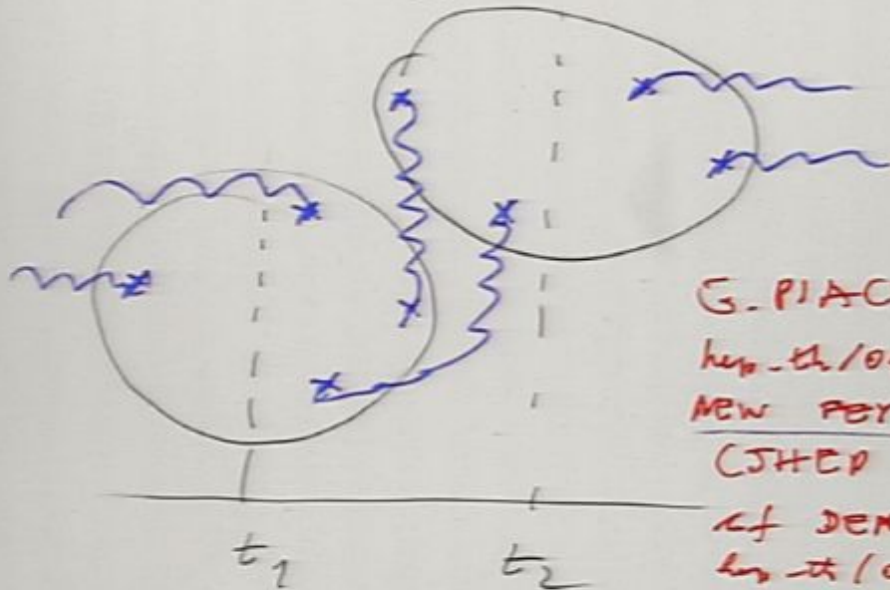 G. PIAC
hep-th/0
NEW FEY
(JHEP
cf DEM
hep-th/0
t₁ t₂